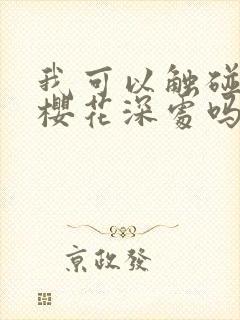 我可以触碰
櫻花深處吗
京政發